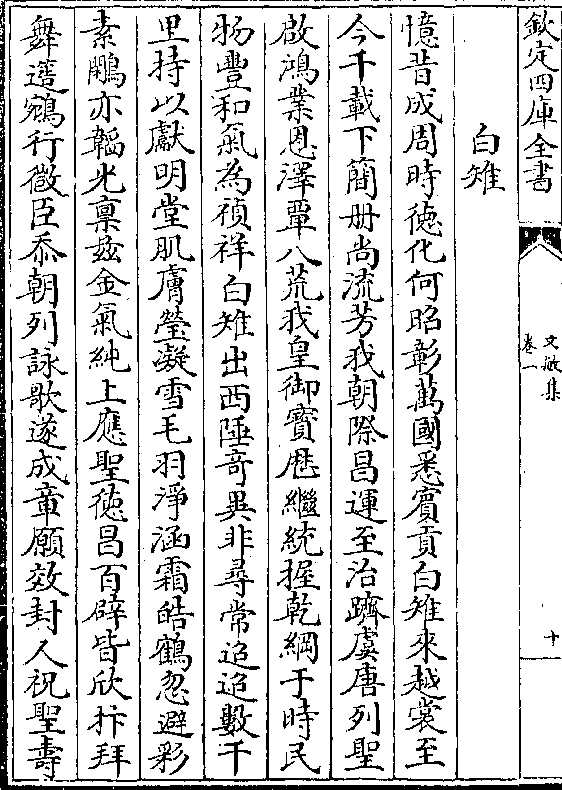 欽定四庫全書
文敏集
卷一
十
白雉
憶昔成周時徳化何昭彰萬國悉賓貢白雉來越裳至
今千載下簡册尚流芳我朝際昌運至治躋虞唐列聖
啟鴻業恩澤覃八荒我皇御寶厯繼統握乾綱于時民
物豐和氣為禎祥白雉出西陲奇異非尋常迢迢數千
里持以獻明堂肌膚瑩凝雪毛羽淨涵霜皓鶴忽避彩
素鵰亦韜光稟兹金氣純上應聖徳昌百辟皆欣抃拜
舞遶鵷行微臣忝朝列詠歌遂成章願效封人祝聖壽